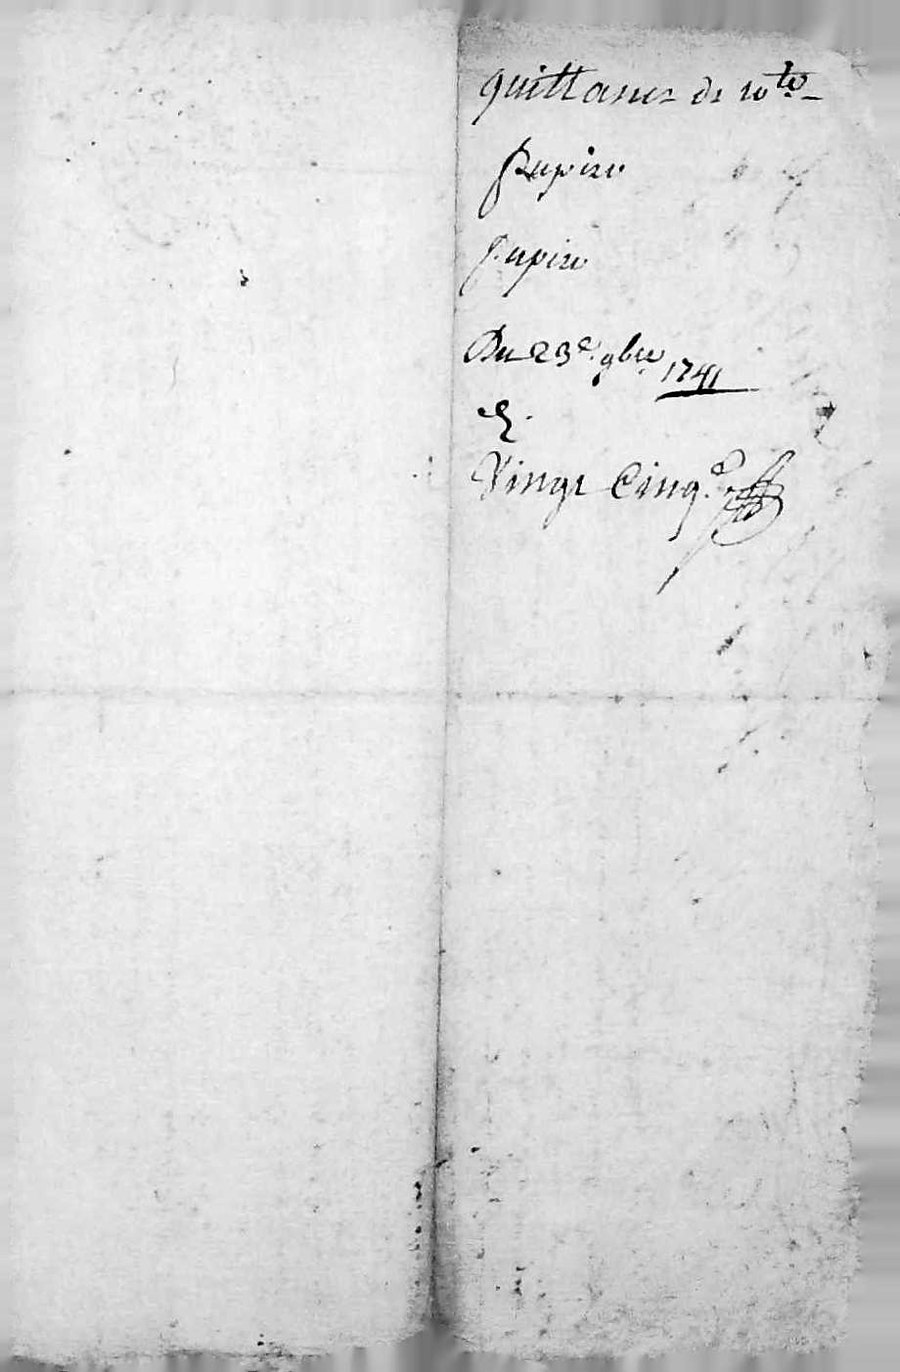 quittance de 10ᵗᵗ
papire
papire
Du 23ᵉ 9bre 1741
E
Vingt Cinqᵉ